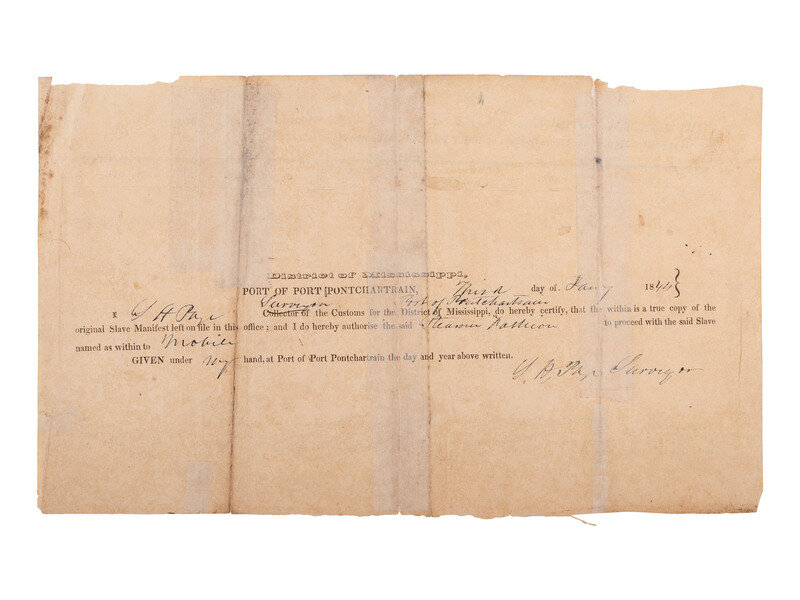 District of Mississippi,
PORT OF PORT PONTCHARTRAIN, Third day of Jany 1844 }
Surveyor Port of Pontchartrain
I S H Page Collector of the Customs for the District of Mississippi, do hereby certify, that the within is a true copy of the
original Slave Manifest left on file in this office; and I do hereby authorise the said Steamer to proceed with the said Slave
named as within to Mobile
GIVEN under my hand, at Port of Port Pontchartrain the day and year above written.
S. H. Page Surveyor